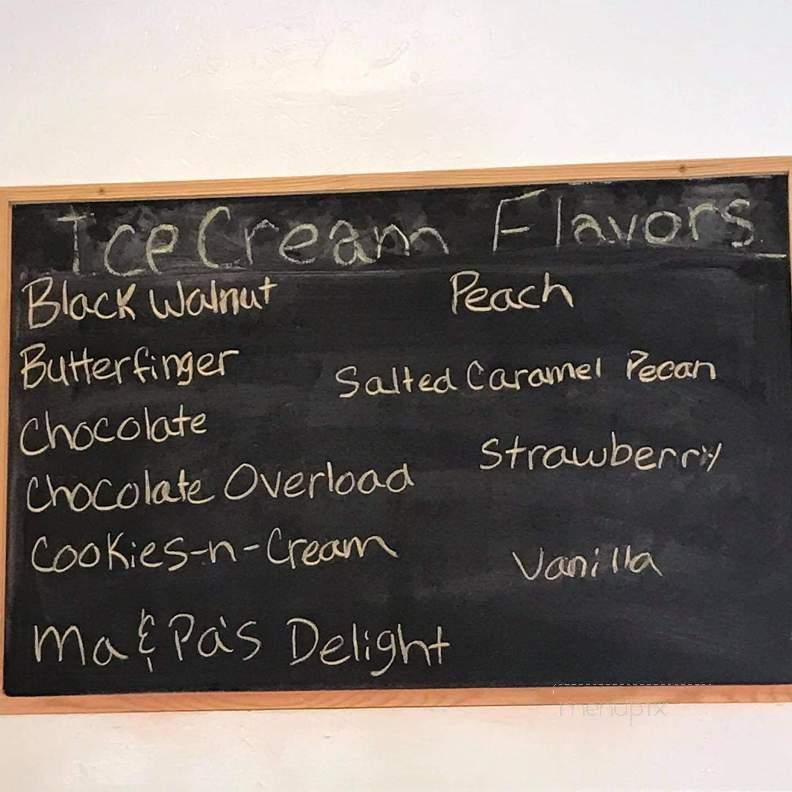 Ice Cream Flavors
Black Walnut
Butterfinger
Chocolate
Chocolate Overload
Cookies-n-Cream
Ma & Pa's Delight
Peach
Salted Caramel Pecan
Strawberry
Vanilla
menupix